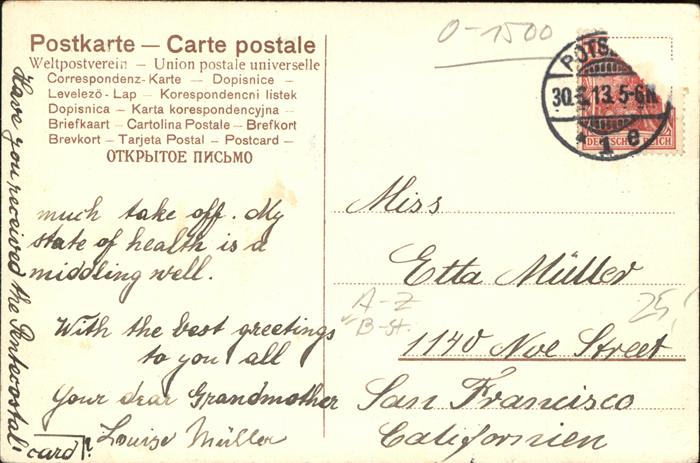 Postkarte — Carte postale
Weltpostverein — Union postale universelle
Correspondenz-Karte — Dopisnice —
Levelező-Lap — Korespondencni listek
Dopisnica — Karta korespondencyjna —
Briefkaart — Cartolina Postale — Brefkort
Brevkort — Tarjeta Postal — Postcard —
ОТКРЫТОЕ ПИСЬМО
0-1500
POTS
13.5-6N.
1 e
DEUTSCHES REICH
much take off. My
state of health is a
middling well.
With the best greetings
to you all
Your dear Grandmother
Louise Müller
Have you received the Pentecostal-
card?
Miss
Etta Müller
A-Z
B-St.
25,
1140 Noe Street
San Francisco
Californien